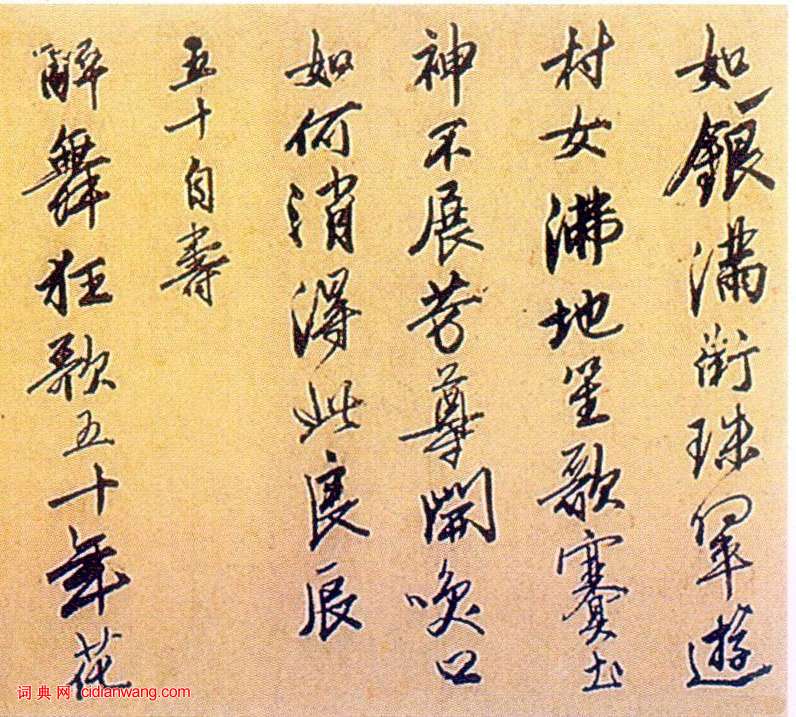 如銀滿街珠翠遊
村女沸地笙歌賽社
神不展芳尊開咲口
如何消得此良辰
五十自壽
醉舞狂歌五十年花
词典网 cidianwang.com